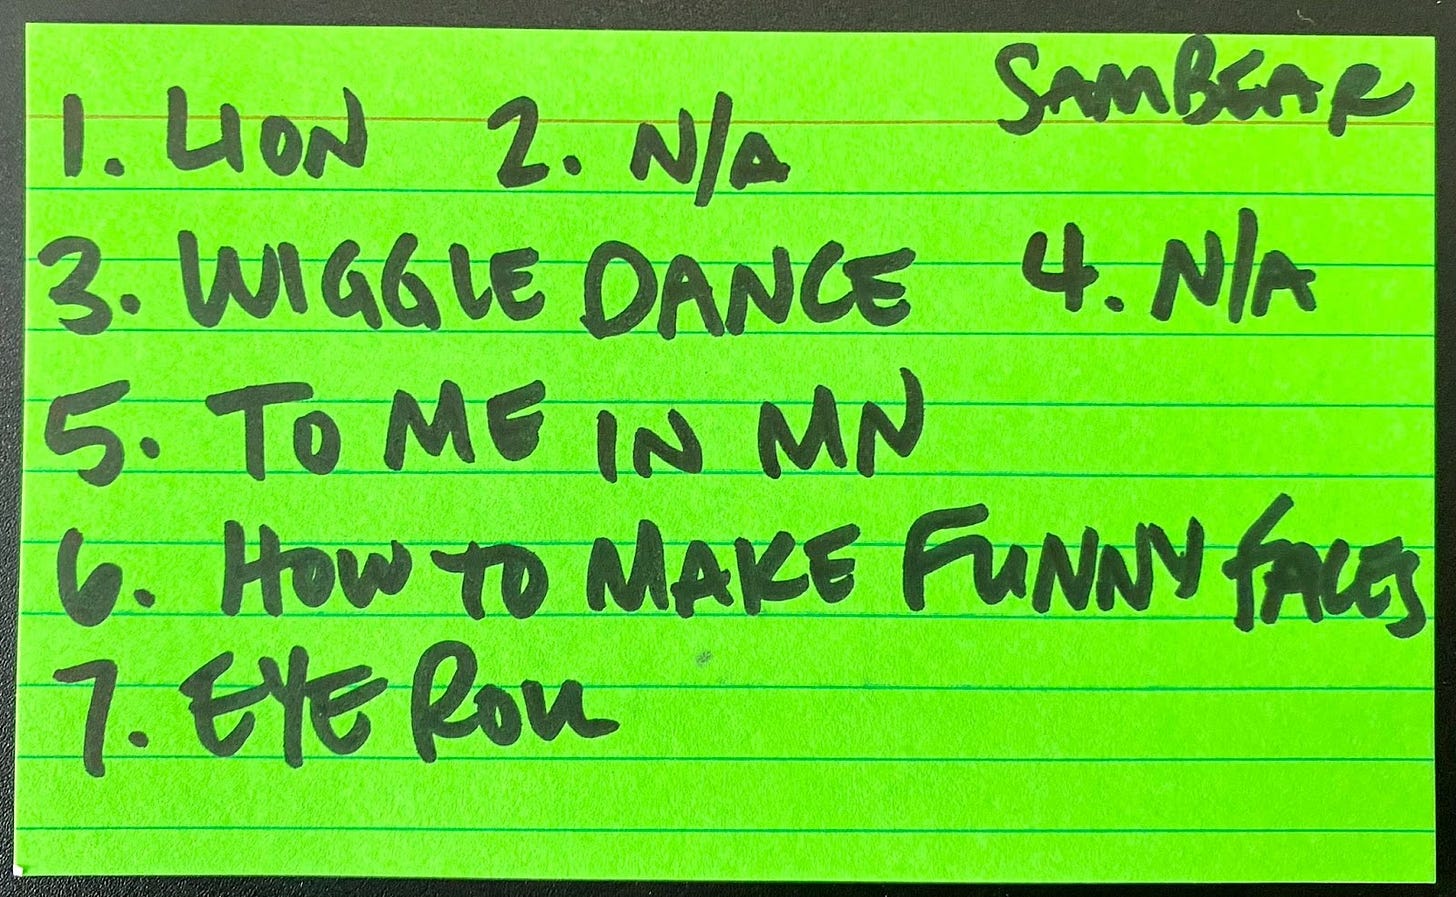 SAMBEAR
1. LION 2. N/A
3. WIGGLE DANCE 4. N/A
5. TO ME IN MN
6. HOW TO MAKE FUNNY FACES
7. EYE ROLL